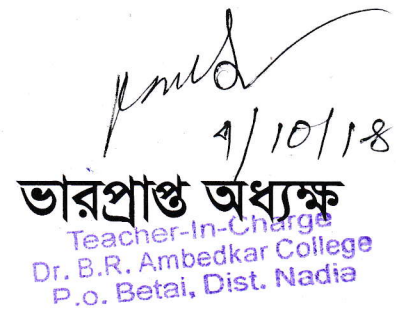 9/10/18
ভারপ্রাপ্ত অধ্যক্ষ
Teacher-In-Charge
Dr. B.R. Ambedkar College
P.o. Betai, Dist. Nadia